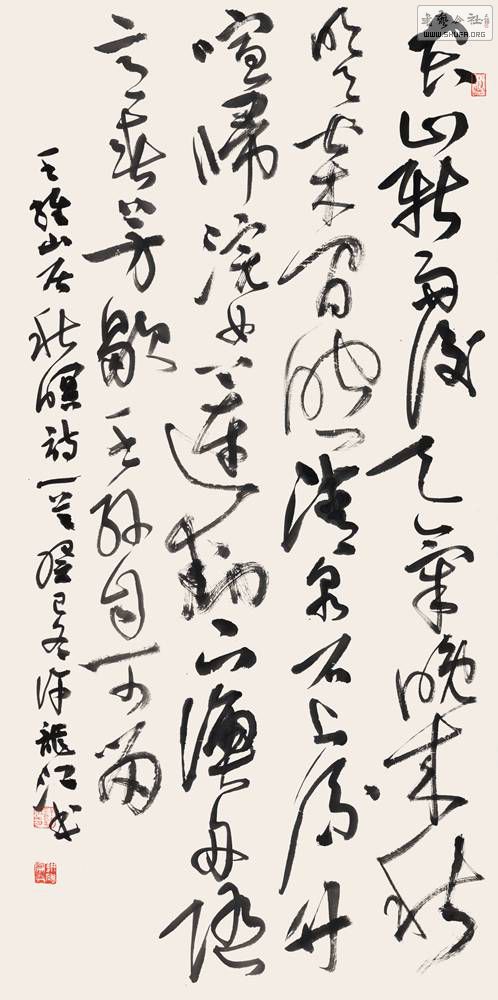 空山新雨後天氣晚來秋
明月松間照清泉石上流竹
喧歸浣女蓮動下漁舟隨
意春芳歇王孫自可留
王維山居秋暝詩一首癸巳冬許龍江書
書藝公社
WWW.SHUFA.ORG